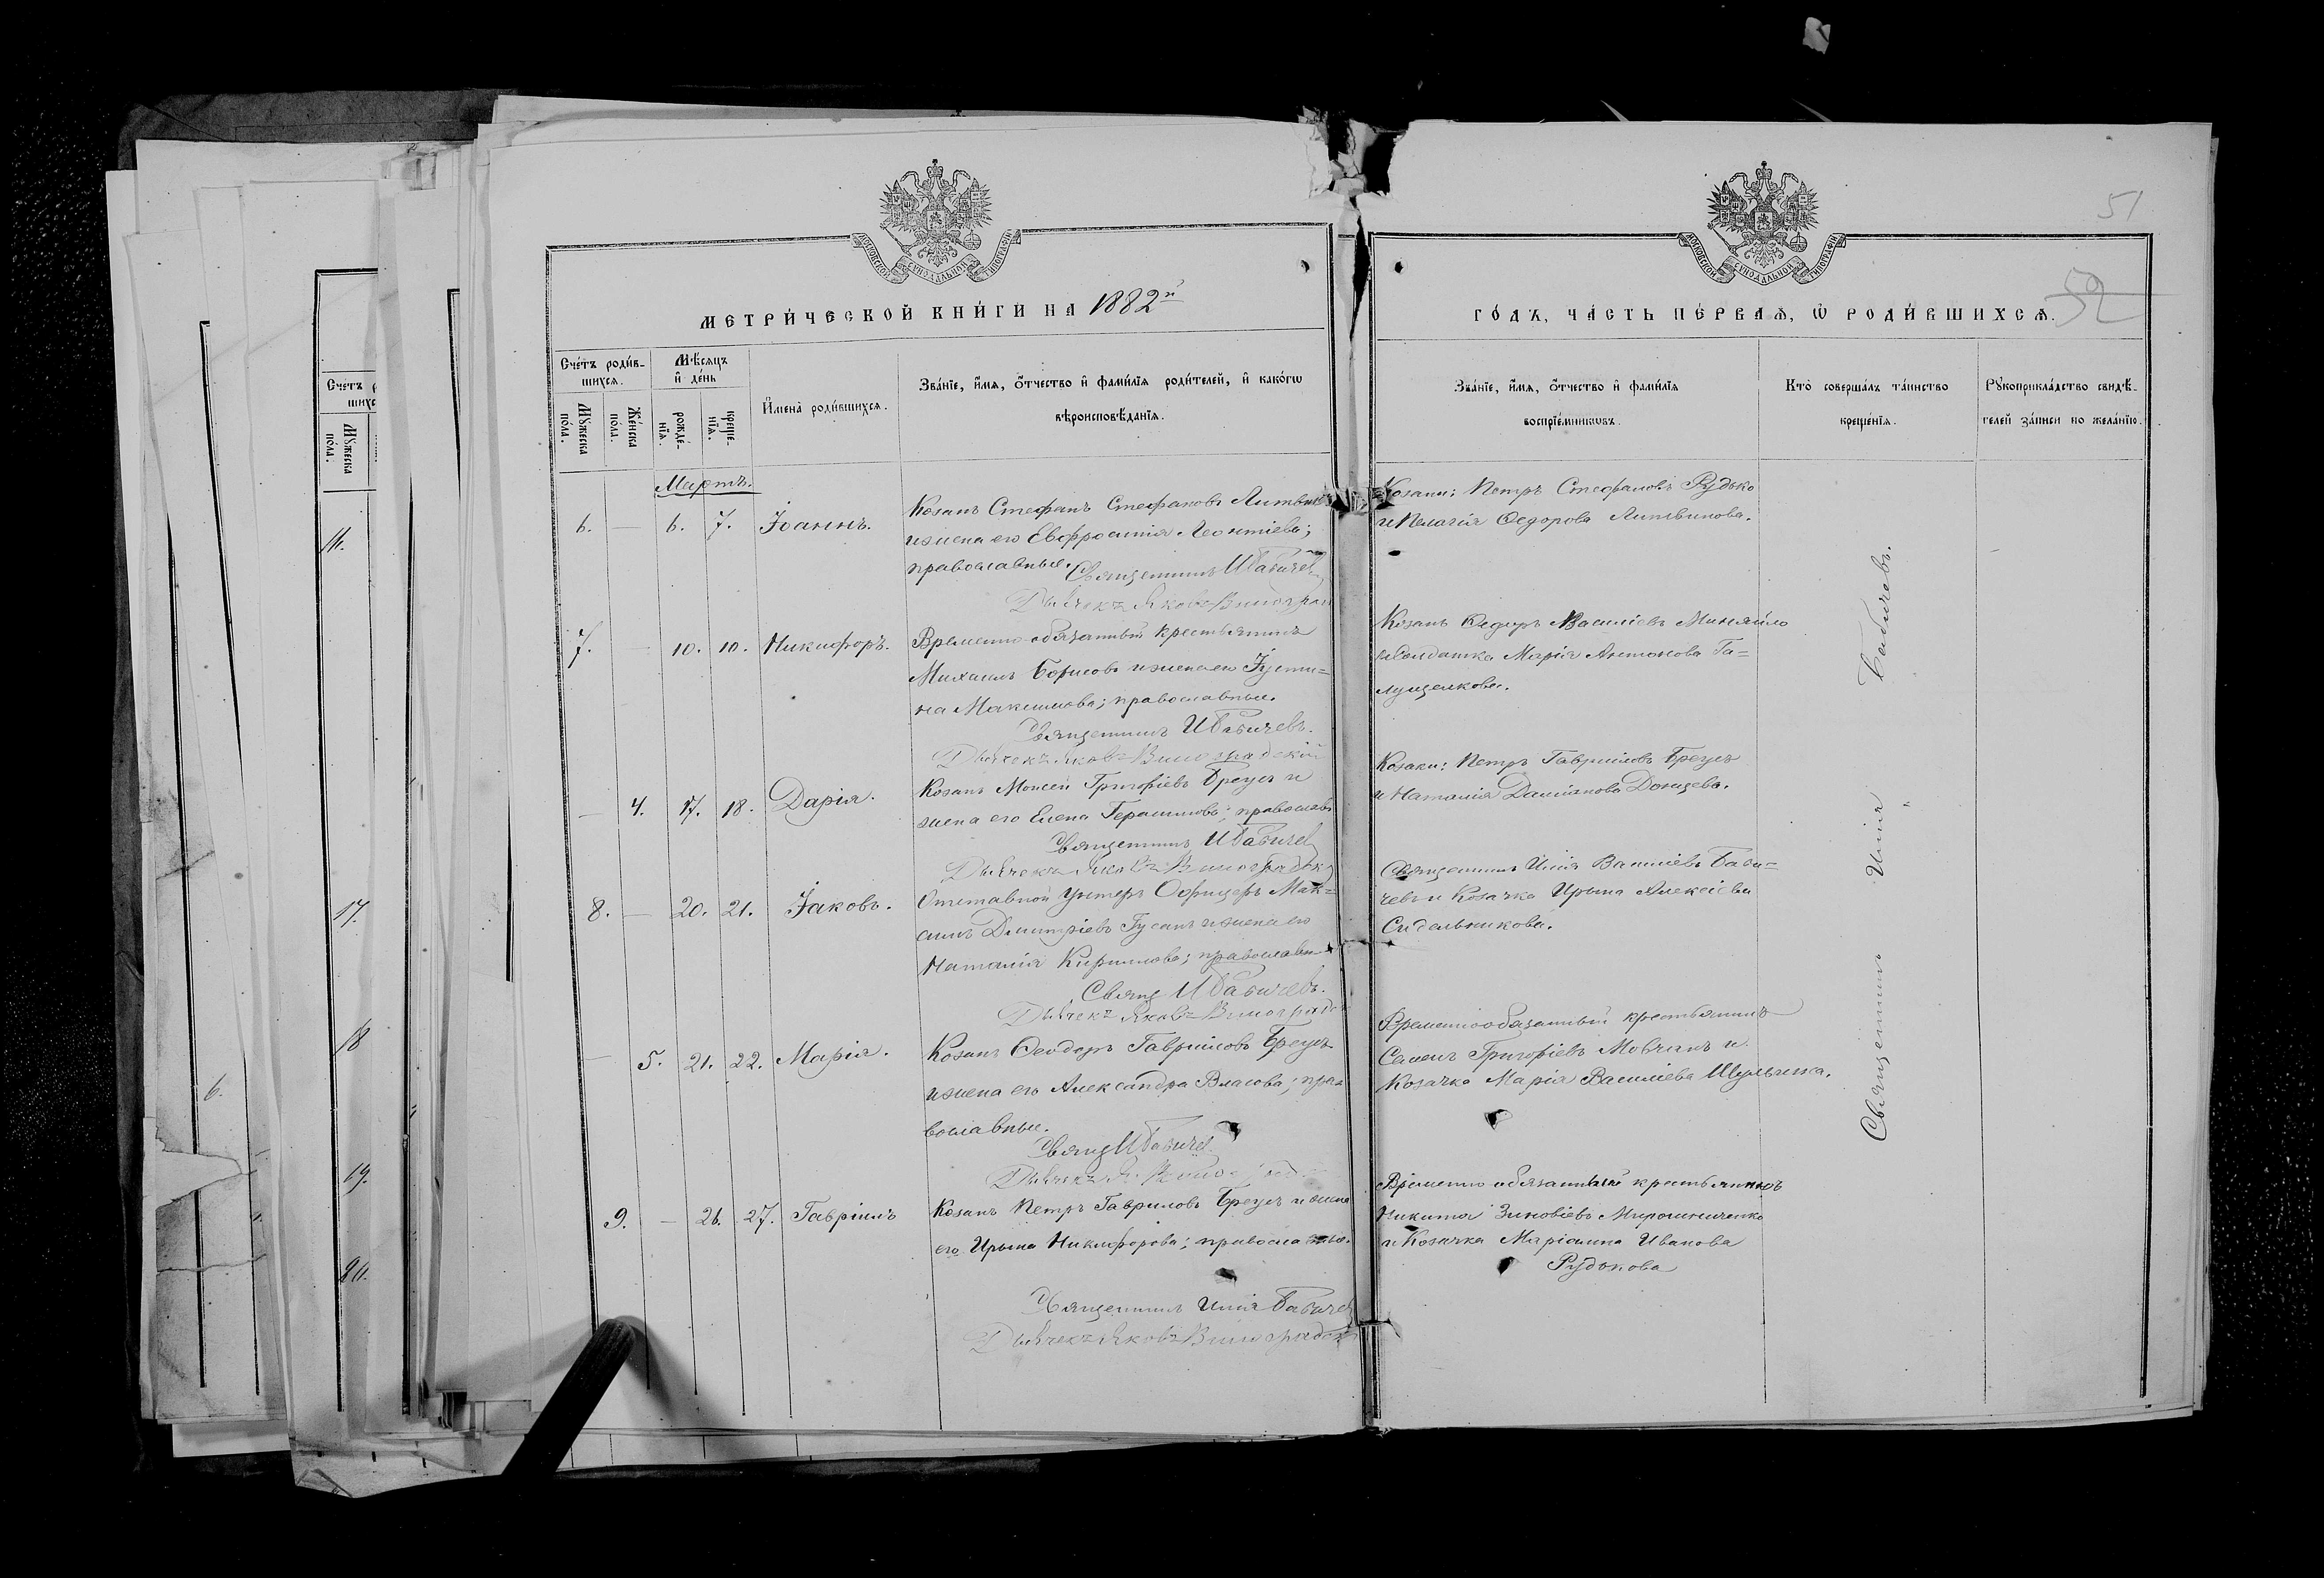 51
52
МОСКОВСКОЙ СУНОДАЛЬНОЙ ТИПОГРАФІИ
МОСКОВСКОЙ СУНОДАЛЬНОЙ ТИПОГРАФІИ
МЕТРИ́ЧЕСКОЙ КНИ́ГИ НА 1882й
ГО́ДЪ, ЧА́СТЬ ПЕ́РВАѦ, Ѡ РОДИ́ВШИХСѦ.
Сче́тъ роди́в-
шихсѧ.
Мꙋ́жеска по́ла.
Же́нска по́ла.
Мѣ́сяцъ
и҆ де́нь
рожде́-
нїѧ.
креще́-
нїѧ.
И҆мена̀ роди́вшихсѧ.
Зва́нїе, и҆́мѧ, ѻ҆́тчество и҆ фами́лїѧ роди́телей, и҆ како́гѡ
вѣроисповѣ́данїѧ.
Зва́нїе, и҆́мѧ, ѻ҆́тчество и҆ фами́лїѧ
воспрїе́мникѡвъ.
Кто̀ соверша́лъ та́инство
креще́нїѧ.
Рꙋкоприкла́дство свидѣ́-
телей за́писи по жела́нїю.
Мартъ.
6. — 6. 7. Іоаннъ.
Козакъ Стефанъ Стефановъ
и жена его Евфросинія Леонтіева;
православные. Священникъ И Бабичев
Дьячекъ Яковъ Виноград
Козаки: Петръ Стефановъ Рудько
и Пелагія Ѳедорова Литвинова.
7. — 10. 10. Никифоръ.
Временно-обязанный крестьянинъ
Михаилъ Борисовъ и жена его Іусти=
на Максимова; православные.
Священникъ И Бабичевъ.
Дьячекъ Яковъ Виноградскій
Козакъ Ѳедоръ Василіевъ Миняйло
и Солдатка Марія Антонова Га=
лущенкова.
— 4. 17. 18. Дарія.
Козакъ Моисей Григоріевъ Бреусъ и
жена его Елена Герасимова; православ
Священникъ И Бабичев
Дьячекъ Яковъ Виноградск
Козаки: Петръ Гавриловъ Бреусъ
и Наталія Даміанова Донцева.
8. — 20. 21. Іаковъ.
Отставной Унтеръ Офицеръ Мак=
симъ Димитріевъ Гусакъ и жена его
Наталія Кириллова; православн
Свящ И Бабичевъ.
Дьячекъ Яковъ Виноградс
Священникъ Илія Василіевъ Баби=
чевъ и Козачка Ирына Алексіева
Сидельникова.
— 5. 21. 22. Марія.
Козакъ Ѳеодоръ Гавриловъ Бреусъ
и жена его Александра Власова; пра
вославные.
Свящ И Бабичев
Дьячекъ Я. Виноград
Временнообязанный крестьянинъ
Семенъ Григоріевъ Мовчанъ и
Козачка Марія Василіева Шульжика.
9. — 26. 27. Гавріилъ
Козакъ Петръ Гавриловъ Бреусъ и жена
его Ирына Никифорова; православные.
Священникъ Илія Бабичев
Дьячекъ Яковъ Виноградск
Временно обязанный крестьянинъ
Никита Зиновіевъ Мирошниченко
и Козачка Маріанна Иванова
Рудькова
Священникъ Илія Бабичевъ.
Сче́тъ
шихс
Мꙋ́жеска
по́ла.
11.
17.
18
19.
20.
6.